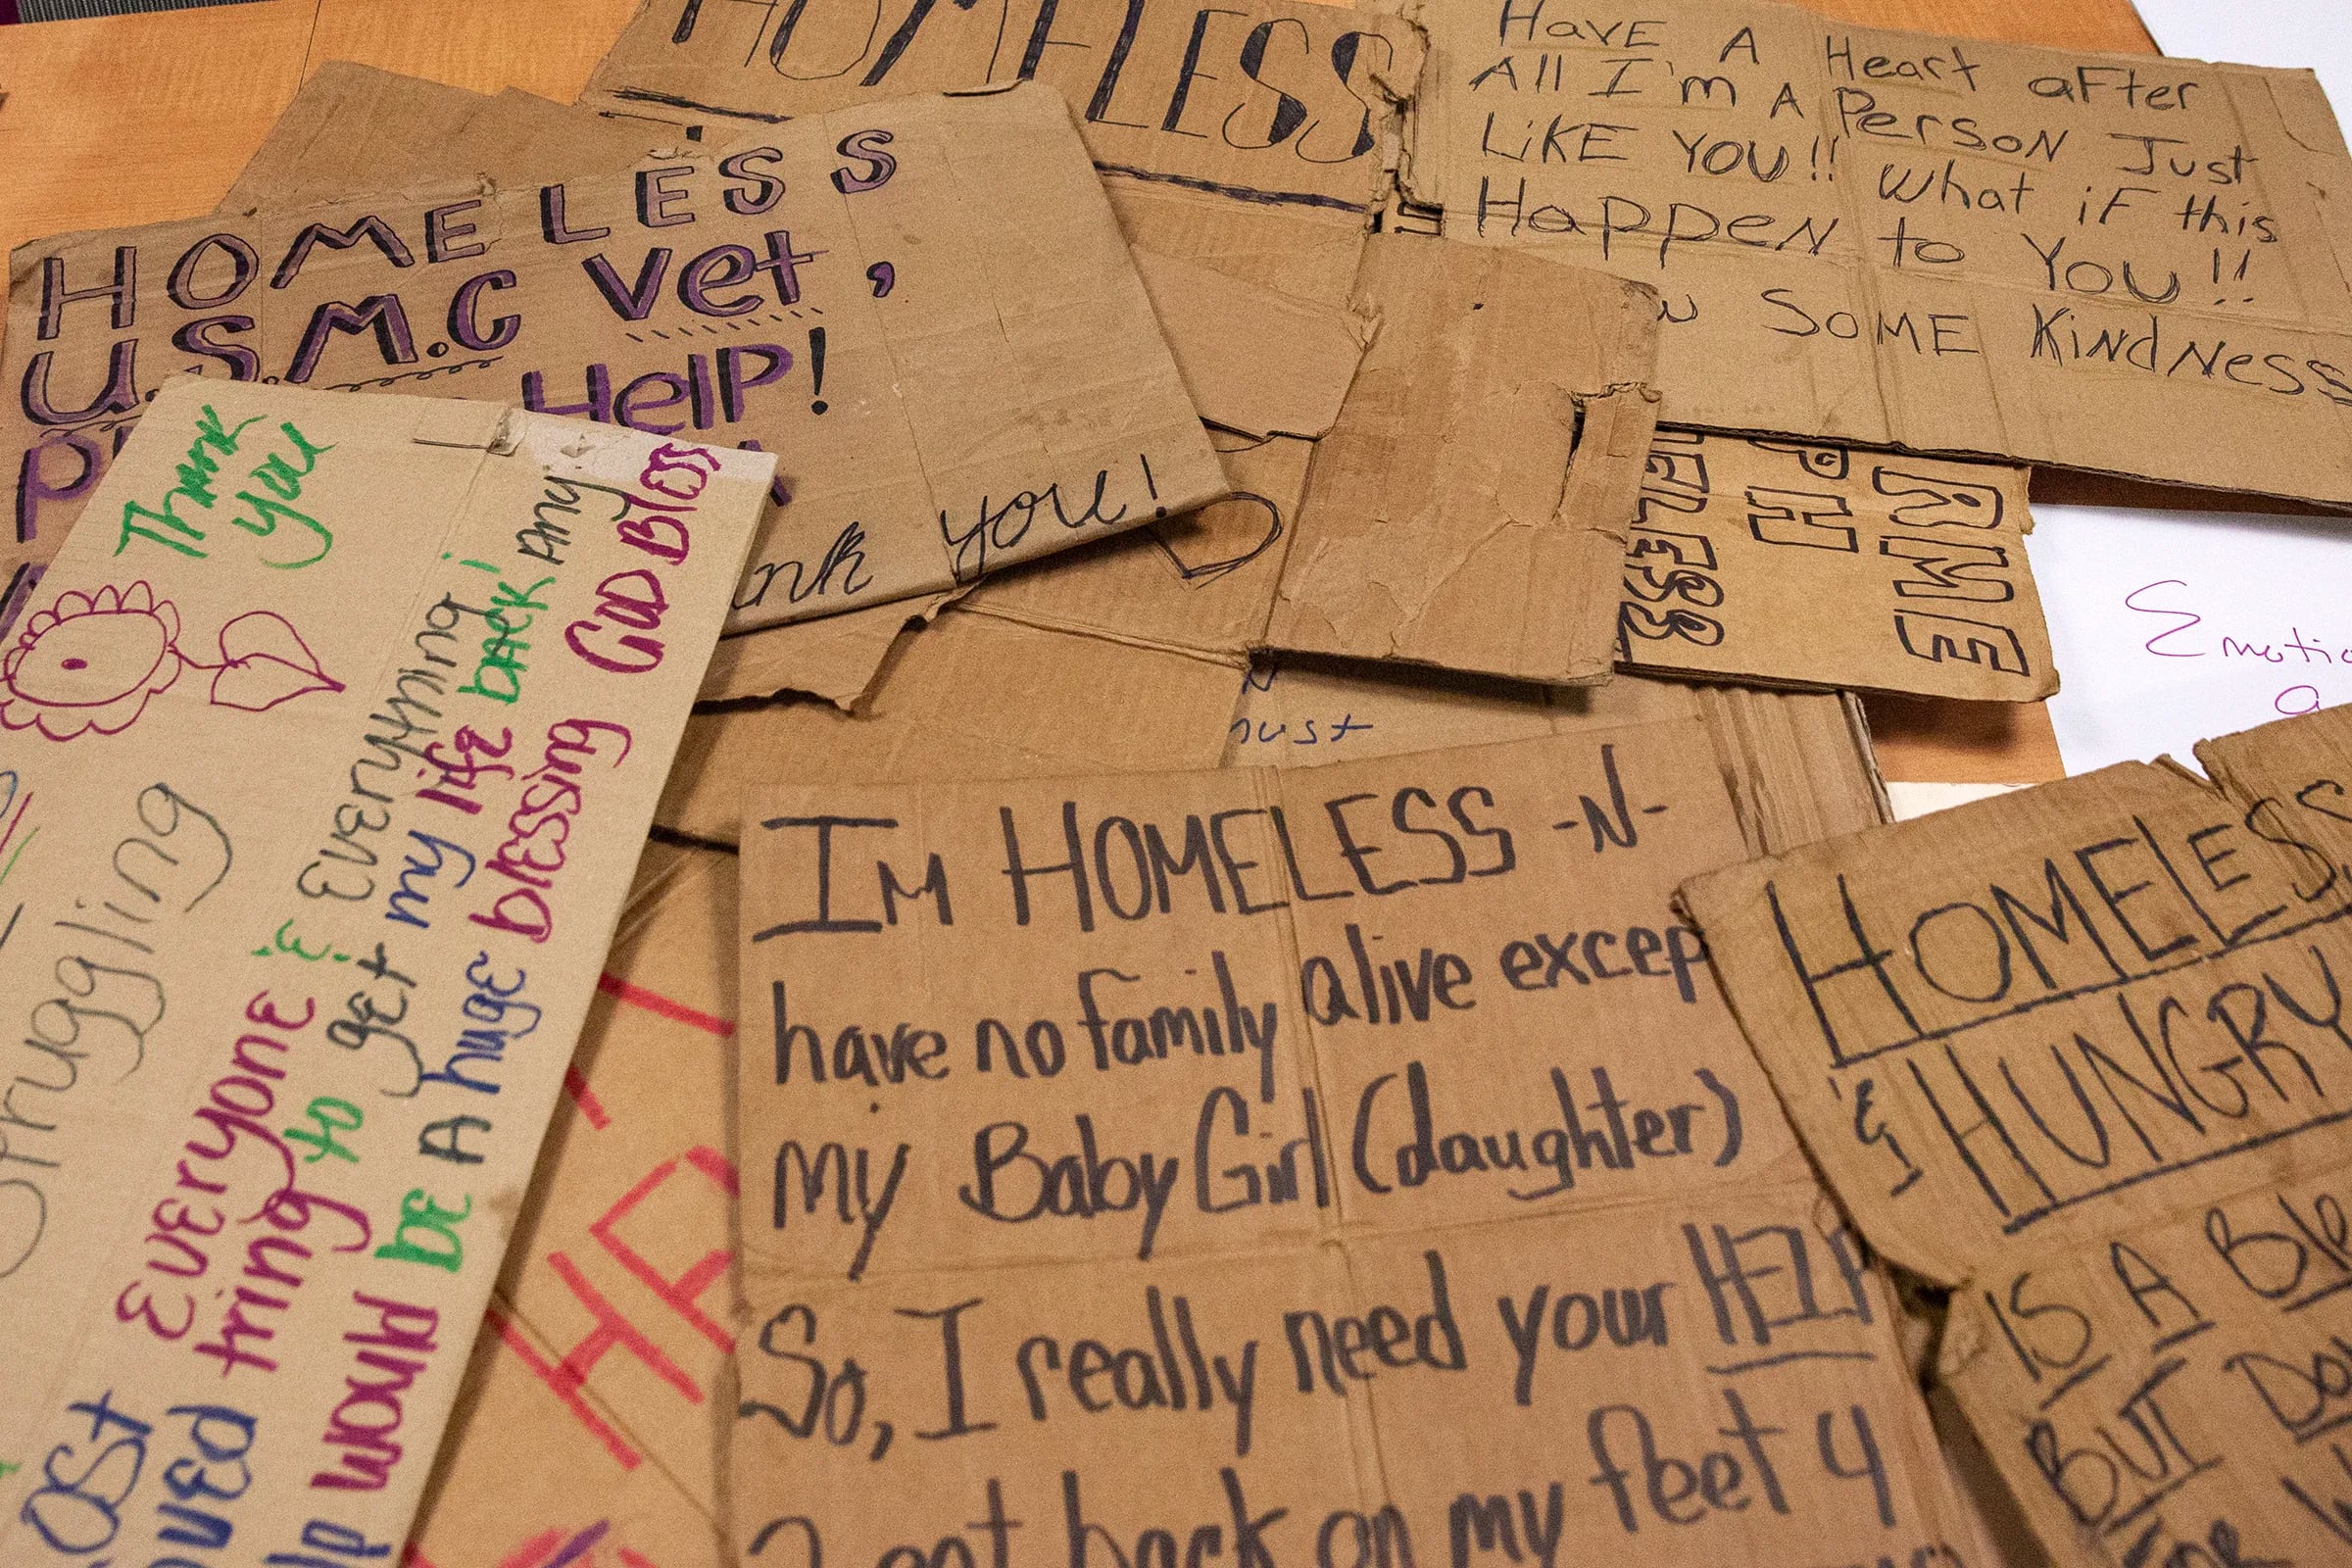 HOMELESS
Have A Heart after
All I'm A Person Just
Like You!! What if this
Happen to You!!
Some Kindness
HOMELESS
U.S.M.C Vet,
Help!
you!
Thank
you
Struggling
Lost Everyone & Everything!
tring to get my life back! Any
would be A huge blessing God Bless
ELESS
PH
RME
must
Im HOMELESS -N-
have no family alive excep
my Baby Girl (daughter)
So, I really need your HELP
2 get back on my feet 4
HOMELESS
& HUNGRY
IS A
BUT